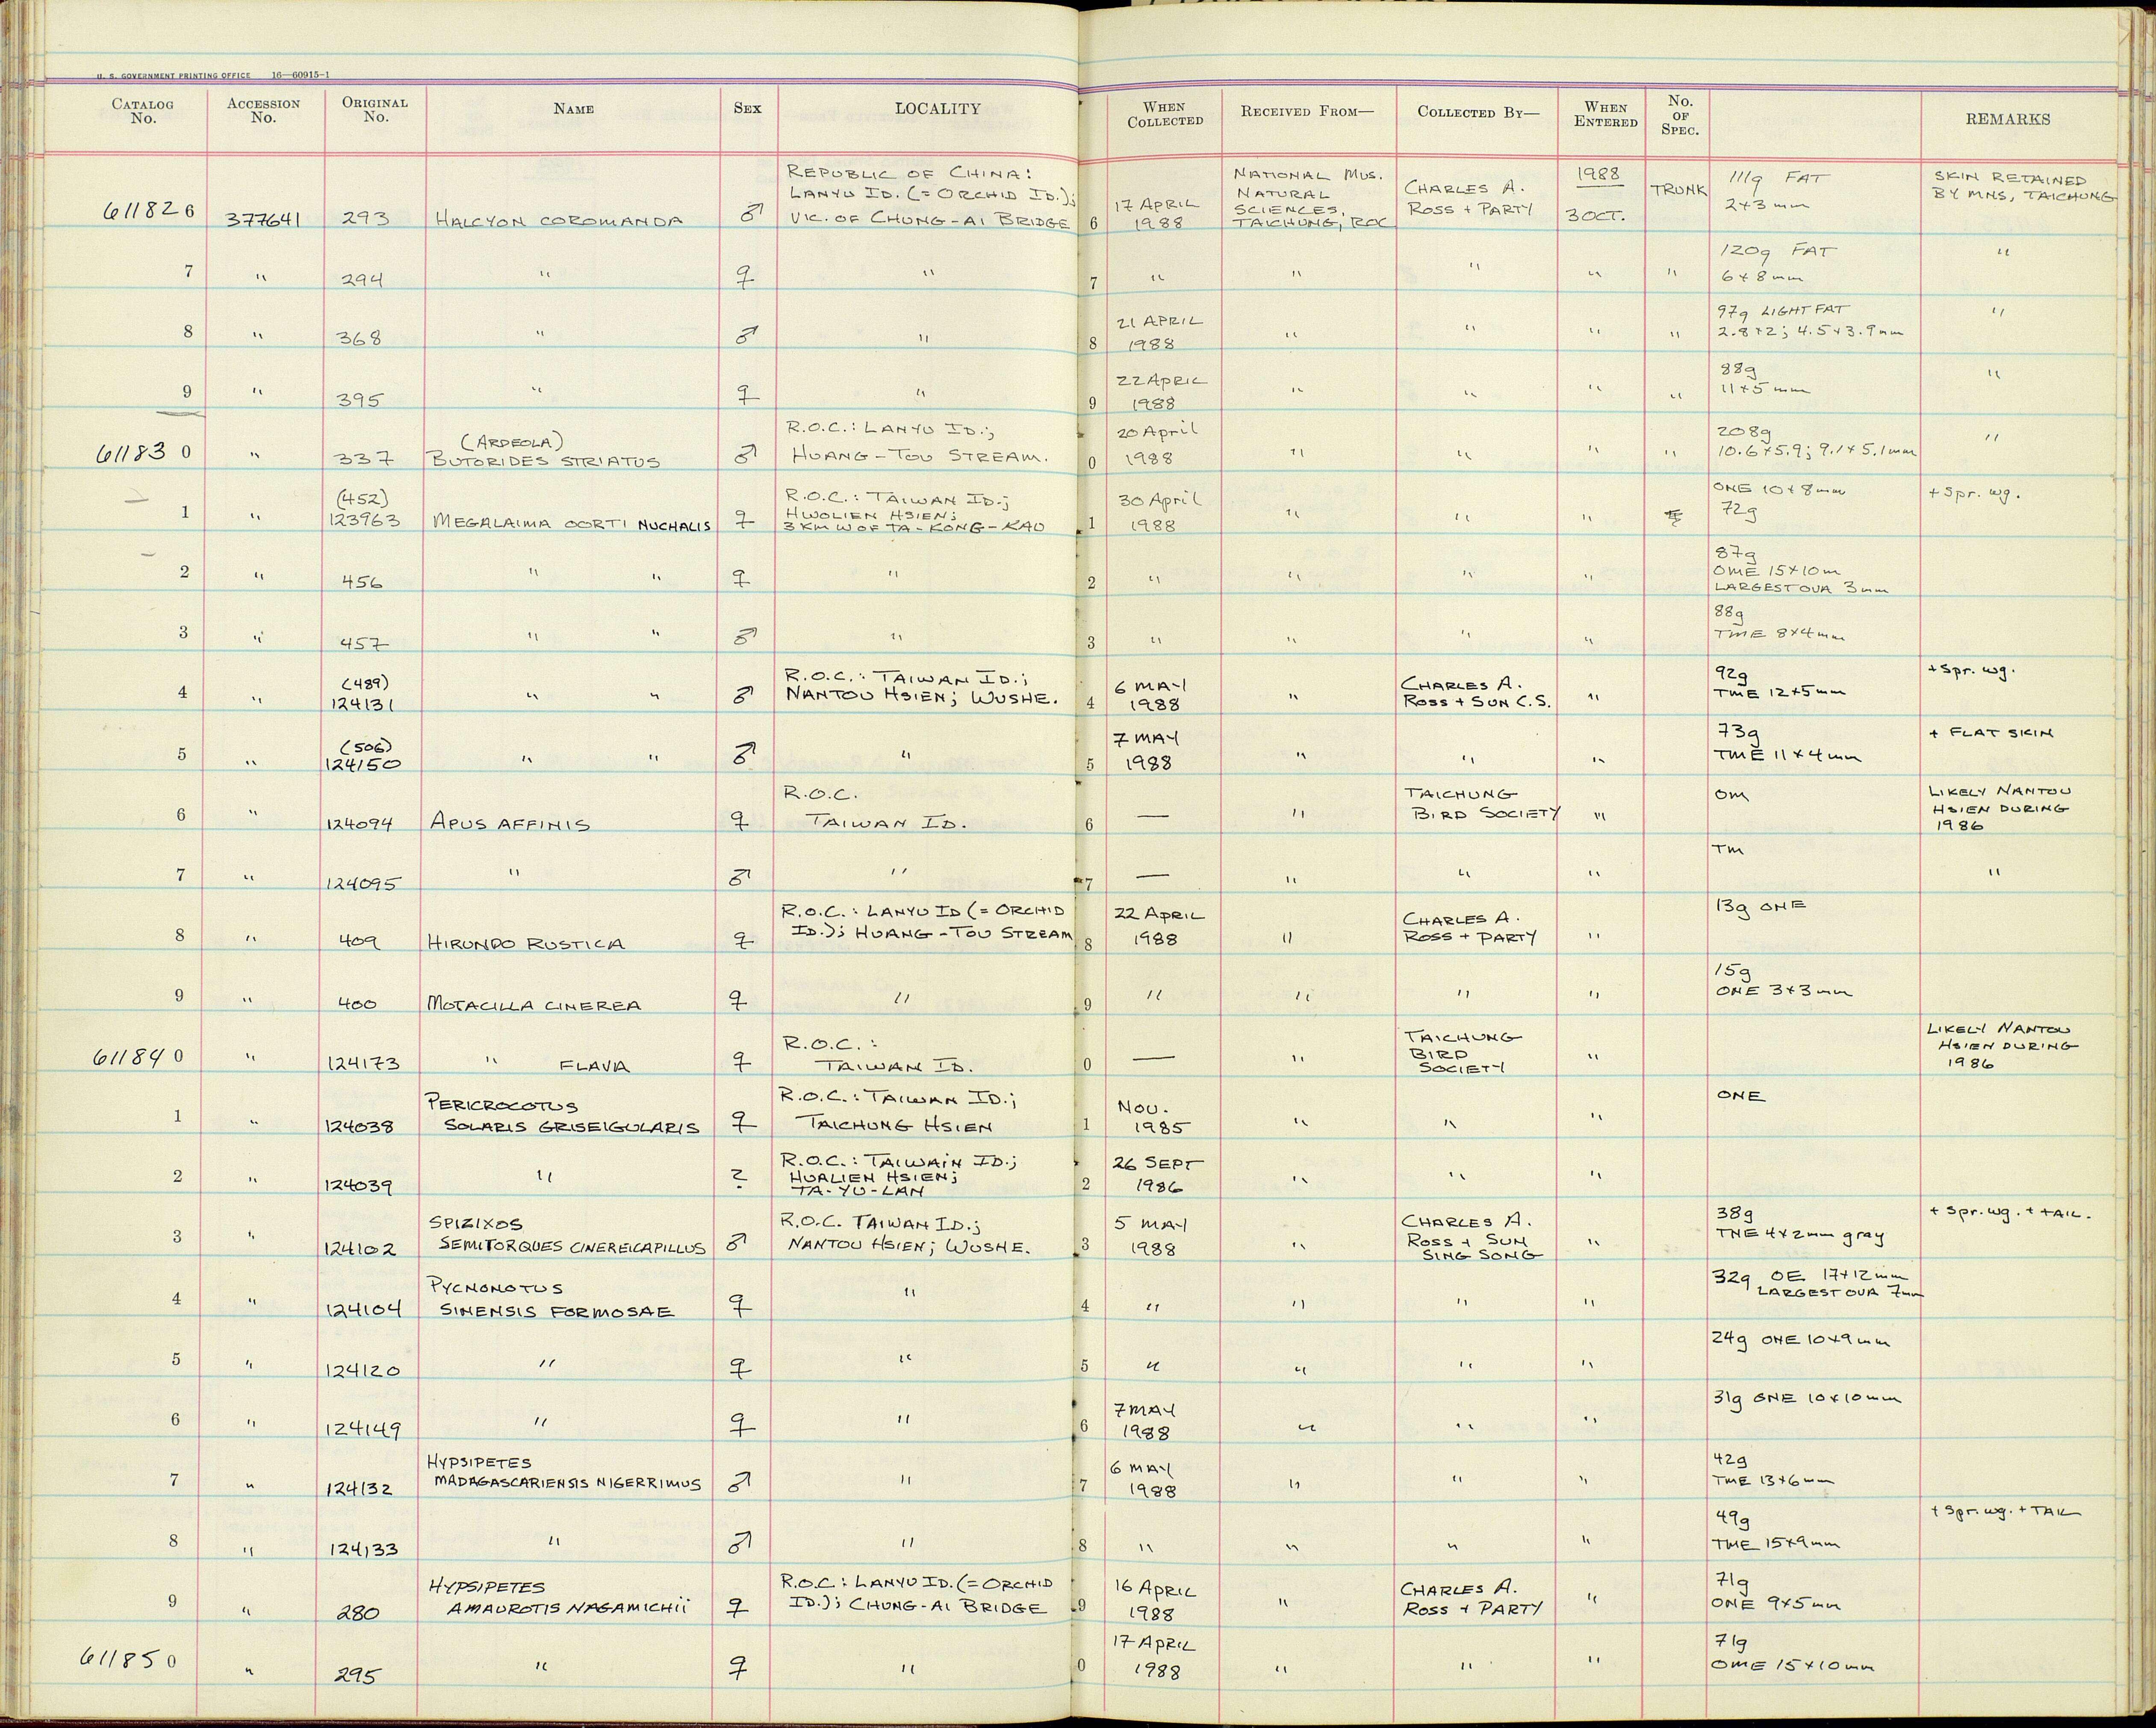 U. S. GOVERNMENT PRINTING OFFICE 16—60915-1
CATALOG No. ACCESSION No. ORIGINAL No. NAME SEX LOCALITY WHEN COLLECTED RECEIVED FROM— COLLECTED BY— WHEN ENTERED No. OF SPEC. REMARKS
REPUBLIC OF CHINA: NATIONAL MUS. 1988 111g FAT SKIN RETAINED
LANYU ID. (= ORCHID ID.); 17 APRIL NATURAL CHARLES A. TRUNK 2+3 mm BY MNS, TAICHUNG
611826 377641 293 HALCYON COROMANDA ♂ VIC. OF CHUNG-AI BRIDGE 6 1988 SCIENCES, ROSS + PARTY 3 OCT.
TAICHUNG, ROC
120g FAT "
7 " 294 " ♀ " 7 " " " " " 6+8mm
21 APRIL 97g LIGHT FAT "
8 " 368 " ♂ " 8 1988 " " " " 2.8+2; 4.5+3.9mm
22 APRIL 88g "
9 " 395 " ♀ " 9 1988 " " " " 11+5 mm
(ARDEOLA) R.O.C.: LANYU ID.; 20 April 208g "
611830 " 337 BUTORIDES STRIATUS ♂ HUANG-TOU STREAM. 0 1988 " " " " 10.6+5.9; 9.1+5.1mm
(452) R.O.C.: TAIWAN ID.; 30 April ONE 10+8mm + Spr. wg.
1 " 123963 MEGALAIMA OORTI NUCHALIS ♀ HWOLIEN HSIEN; 1 1988 " " " 72g
3 KM W OF TA-KONG-KAU
87g
2 " 456 " " ♀ " 2 " " " " OME 15+10m
LARGEST OVA 3mm
88g
3 " 457 " " ♂ " 3 " " " " TME 8+4mm
(489) R.O.C.: TAIWAN ID.; 6 MAY CHARLES A. 92g + Spr. wg.
4 " 124131 " " ♂ NANTOU HSIEN; WUSHE. 4 1988 " ROSS + SUN C.S. " TME 12+5mm
(506) 7 MAY 73g + FLAT SKIN
5 " 124150 " " ♂ " 5 1988 " " " TME 11+4mm
R.O.C. TAICHUNG OM LIKELY NANTOU
6 " 124094 APUS AFFINIS ♀ TAIWAN ID. 6 — " BIRD SOCIETY " HSIEN DURING
1986
TM
7 " 124095 " ♂ " 7 — " " " "
R.O.C.: LANYU ID (= ORCHID 22 APRIL CHARLES A. 13g ONE
8 " 409 HIRUNDO RUSTICA ♀ ID.); HUANG-TOU STREAM 8 1988 " ROSS + PARTY "
15g
9 " 400 MOTACILLA CINEREA ♀ " 9 " " " " ONE 3+3mm
R.O.C.: TAICHUNG LIKELY NANTOU
611840 " 124173 " FLAVA ♀ TAIWAN ID. 0 — " BIRD " HSIEN DURING
SOCIETY 1986
PERICROCOTUS R.O.C.: TAIWAN ID.; NOV. ONE
1 " 124038 SOLARIS GRISEIGULARIS ♀ TAICHUNG HSIEN 1 1985 " " "
R.O.C.: TAIWAIN ID.; 26 SEPT
2 " 124039 " ? HUALIEN HSIEN; 2 1986 " " "
TA-YU-LAN
SPIZIXOS R.O.C. TAIWAN ID.; 5 MAY CHARLES A. 38g + Spr. wg. + TAIL.
3 " 124102 SEMITORQUES CINEREICAPILLUS ♂ NANTOU HSIEN; WUSHE. 3 1988 " ROSS + SUN " TNE 4+2mm gray
SING SONG
PYCNONOTUS 32g OE 17+12mm
4 " 124104 SINENSIS FORMOSAE ♀ " 4 " " " " LARGEST OVA 7mm
5 " 124120 " ♀ " 5 " " " " 24g ONE 10+9mm
7 MAY 31g ONE 10+10mm
6 " 124149 " ♀ " 6 1988 " " "
HYPSIPETES 6 MAY 42g
7 " 124132 MADAGASCARIENSIS NIGERRIMUS ♂ " 7 1988 " " " TME 13+6mm
49g + Spr. wg. + TAIL
8 " 124133 " ♂ " 8 " " " " TME 15+9mm
HYPSIPETES R.O.C.: LANYU ID. (= ORCHID 16 APRIL CHARLES A. 71g
9 " 280 AMAUROTIS NAGAMICHII ♀ ID.); CHUNG-AI BRIDGE 9 1988 " ROSS + PARTY " ONE 9+5mm
17 APRIL 71g
611850 " 295 " ♀ " 0 1988 " " " OME 15+10mm